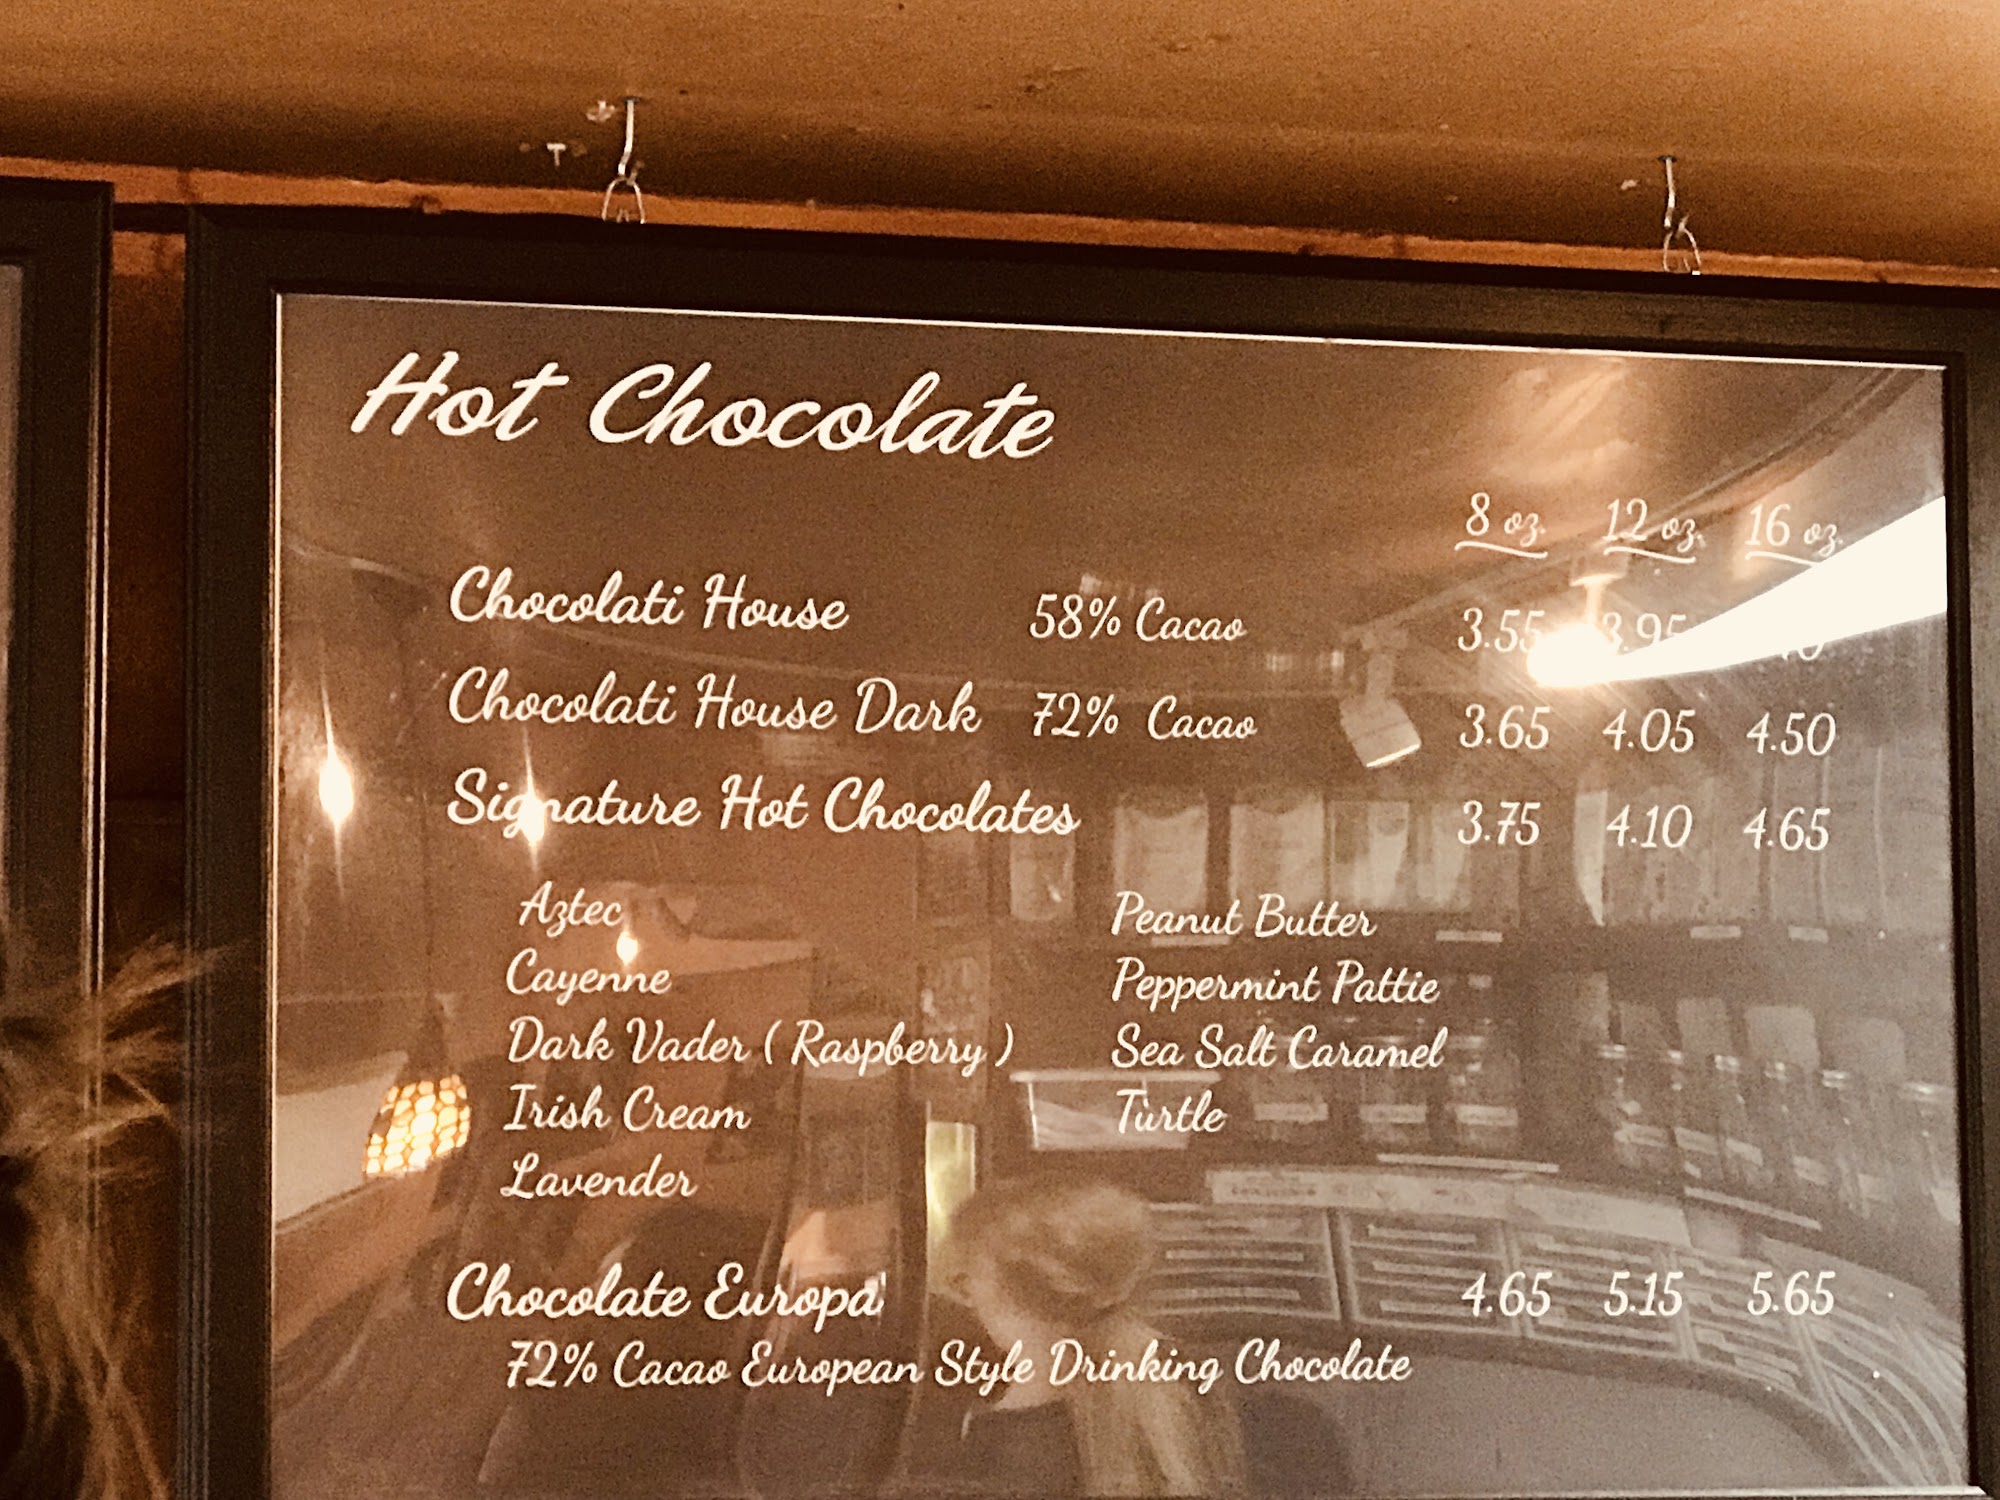 Hot Chocolate
8 oz. 12 oz. 16 oz.
Chocolati House 58% Cacao 3.55 3.95
Chocolati House Dark 72% Cacao 3.65 4.05 4.50
Signature Hot Chocolates 3.75 4.10 4.65
Aztec Peanut Butter
Cayenne Peppermint Pattie
Dark Vader ( Raspberry ) Sea Salt Caramel
Irish Cream Turtle
Lavender
Chocolate Europa 4.65 5.15 5.65
72% Cacao European Style Drinking Chocolate